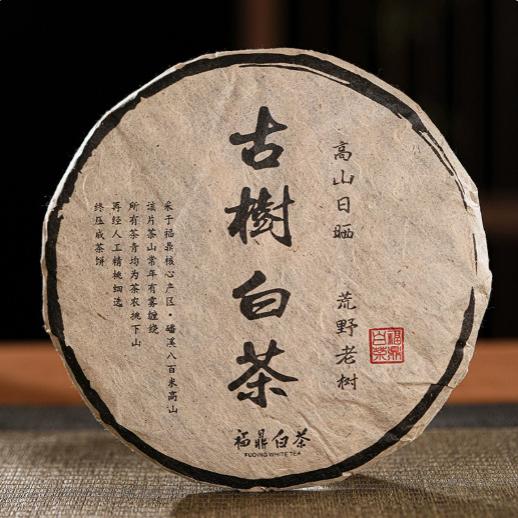 古樹白茶
高山日晒 荒野老树
福鼎白茶
采于福鼎核心产区·磻溪八百米高山
该片茶山常年有雾缠绕
所有茶青均为茶农挑下山
再经人工精挑细选
终压成茶饼
福鼎白茶
FUDING WHITE TEA